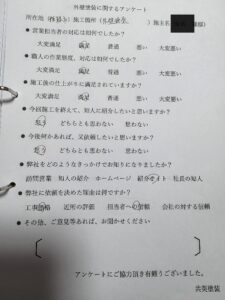 外壁塗装に関するアンケート
所在地 ( ) 施工箇所 ( ) 施主名 様邸)
●営業担当者の対応は如何でしたか？
大変満足 満足 普通 悪い 大変悪い
●職人の作業態度、対応は如何でしたか？
大変満足 満足 普通 悪い 大変悪い
●施工後の仕上がりに満足されていますか？
大変満足 満足 普通 悪い 大変悪い
●今回施工を終えて、知人に紹介したいと思いますか？
思う どちらとも思わない 思わない
●今後何かあれば、又依頼したいと思いますか？
思う どちらとも思わない 思わない
●弊社をどのようなきっかけでお知りになりましたか？
訪問営業 知人の紹介 ホームページ 紹介サイト 社長の知人
●弊社に依頼を決めた理由は何ですか？
工事価格 近所の評価 担当者への信頼 会社の対する信頼
●その他、ご意見等あれば、お聞かせください
アンケートにご協力頂き有難うございました。
共英塗装